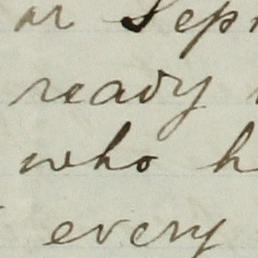 or Sep
ready
who h
every